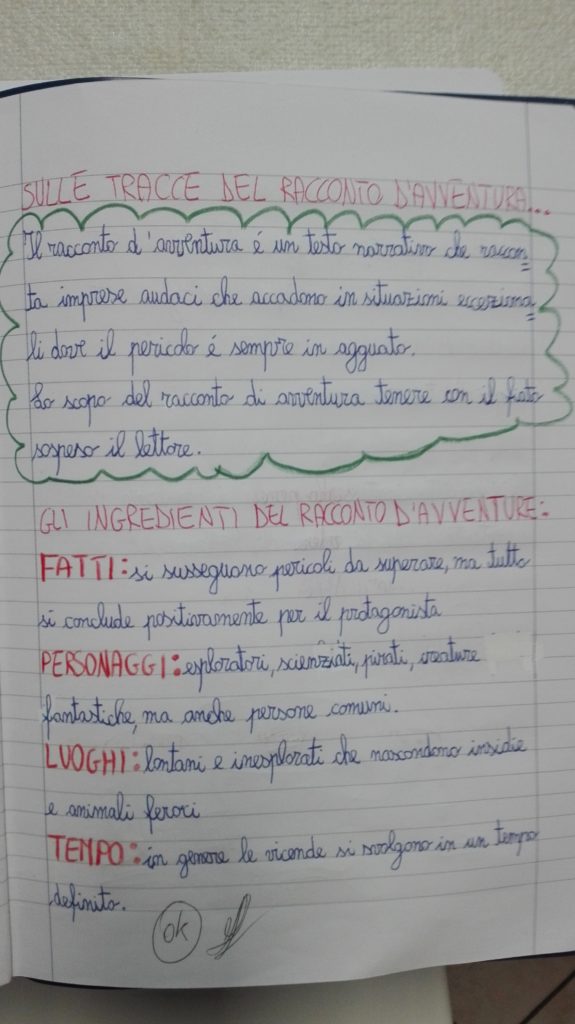 SULLE TRACCE DEL RACCONTO D'AVVENTURA...
Il racconto d'avventura é un testo narrativo che raccon
ta imprese audaci che accadono in situazioni ecceziona
li dove il pericolo é sempre in agguato.
Lo scopo del racconto di avventura tenere con il fiato
sospeso il lettore.
GLI INGREDIENTI DEL RACCONTO D'AVVENTURE:
FATTI: si susseguono pericoli da superare, ma tutto
si conclude positivamente per il protagonista
PERSONAGGI: esploratori, scienziati, pirati, creature
fantastiche, ma anche persone comuni.
LUOGHI: lontani e inesplorati che nascondono insidie
e animali feroci
TEMPO: in genere le vicende si svolgono in un tempo
definito.
ok